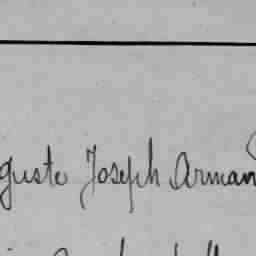 guste Joseph Arman